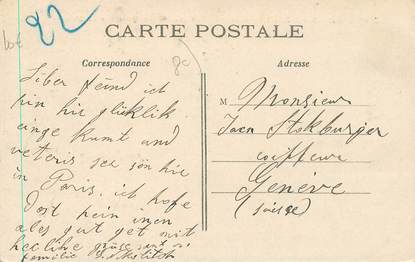 lot 22
CARTE POSTALE
Correspondance
Adresse
Liber freind ich
bin hir glüklik
ange kumt und
veter is see sön hie
in Paris. ich hofe
Dost bein inen
ales gut get mit
heclihe grüse
familie
M Monsieur
Jaen Stokburger
coiffeur
Genève
(Suisse)